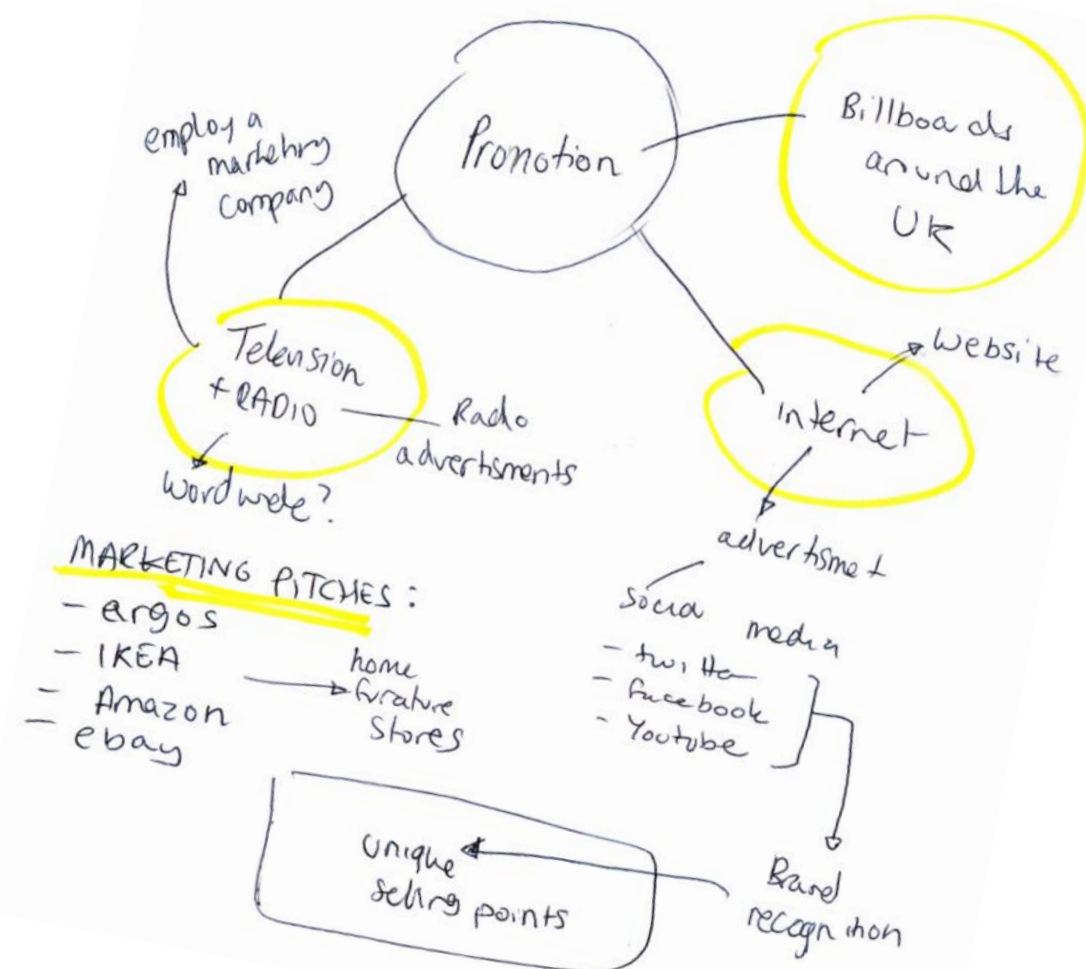 Promotion
Billboards
around the
UK
employ a
marketing
company
Television
+ RADIO
Radio
advertisments
wordwide?
internet
website
advertismet
social media
- twitter
- facebook
- Youtube
Brand
recognition
unique
selling points
MARKETING PITCHES:
- argos
- IKEA
- Amazon
- ebay
home
furature
stores